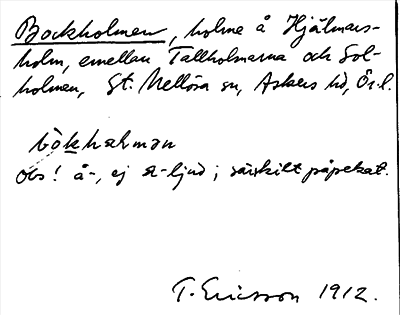 Bockholmen, holme å Hjälmars-
holm, emellan Tallholmarna och Sol-
holmen, St. Mellösa sn, Askers hd, Ör. l.
båkhalmən
Obs! å-, ej a-ljud; särskilt påpekat.
T. Ericsson 1912.